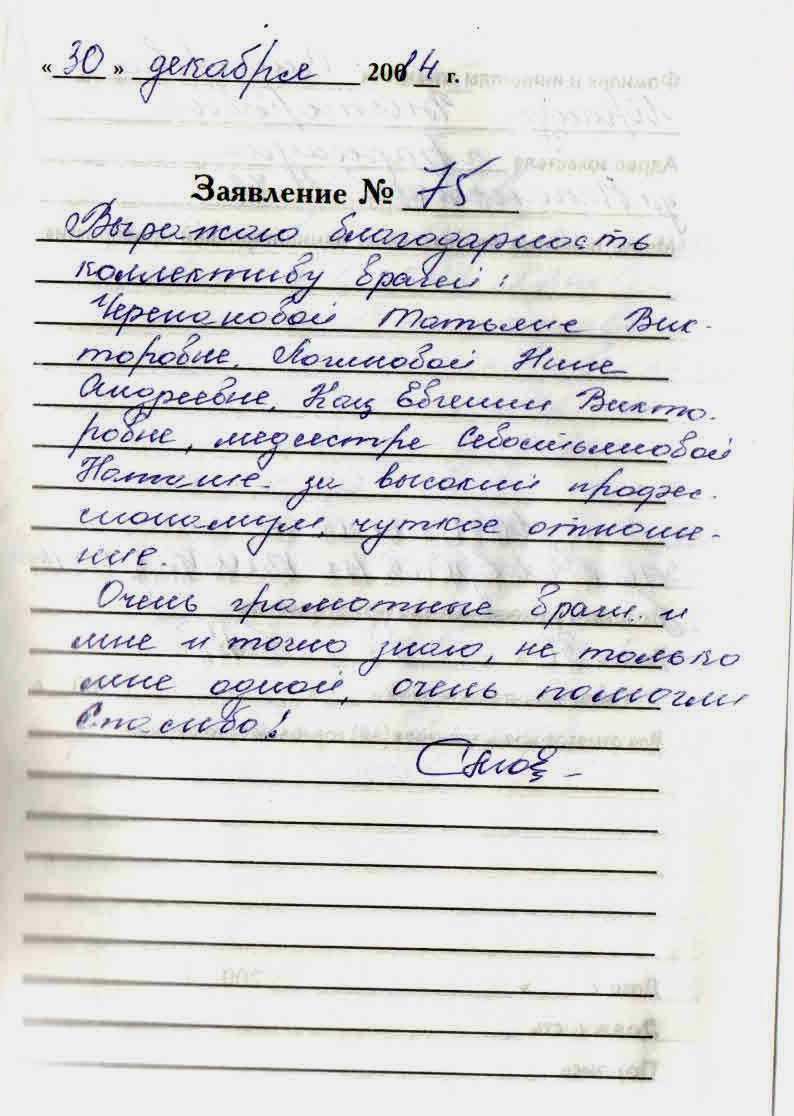 « 30 » декабря 2014 г.
Заявление № 75
Выражаю благодарность
коллективу врачей:
Черепановой Татьяне Вик-
торовне, Логиновой Нине
Андреевне, Кац Евгении Викто-
ровне, медсестре Севостьяновой
Наташе за высокий профес-
сионализм, чуткое отноше-
ние.
Очень грамотные врачи и
мне и точно знаю, не только
мне одной, очень помогли
Спасибо!